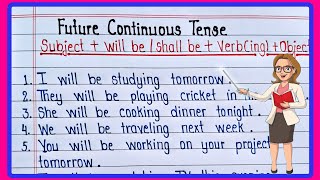 Future Continuous Tense
Subject + will be / shall be + Verb(ing) + Object
1. I will be studying tomorrow.
2. They will be playing cricket in
3. She will be cooking dinner tonight.
4. We will be traveling next week.
5. You will be working on your project
tomorrow.